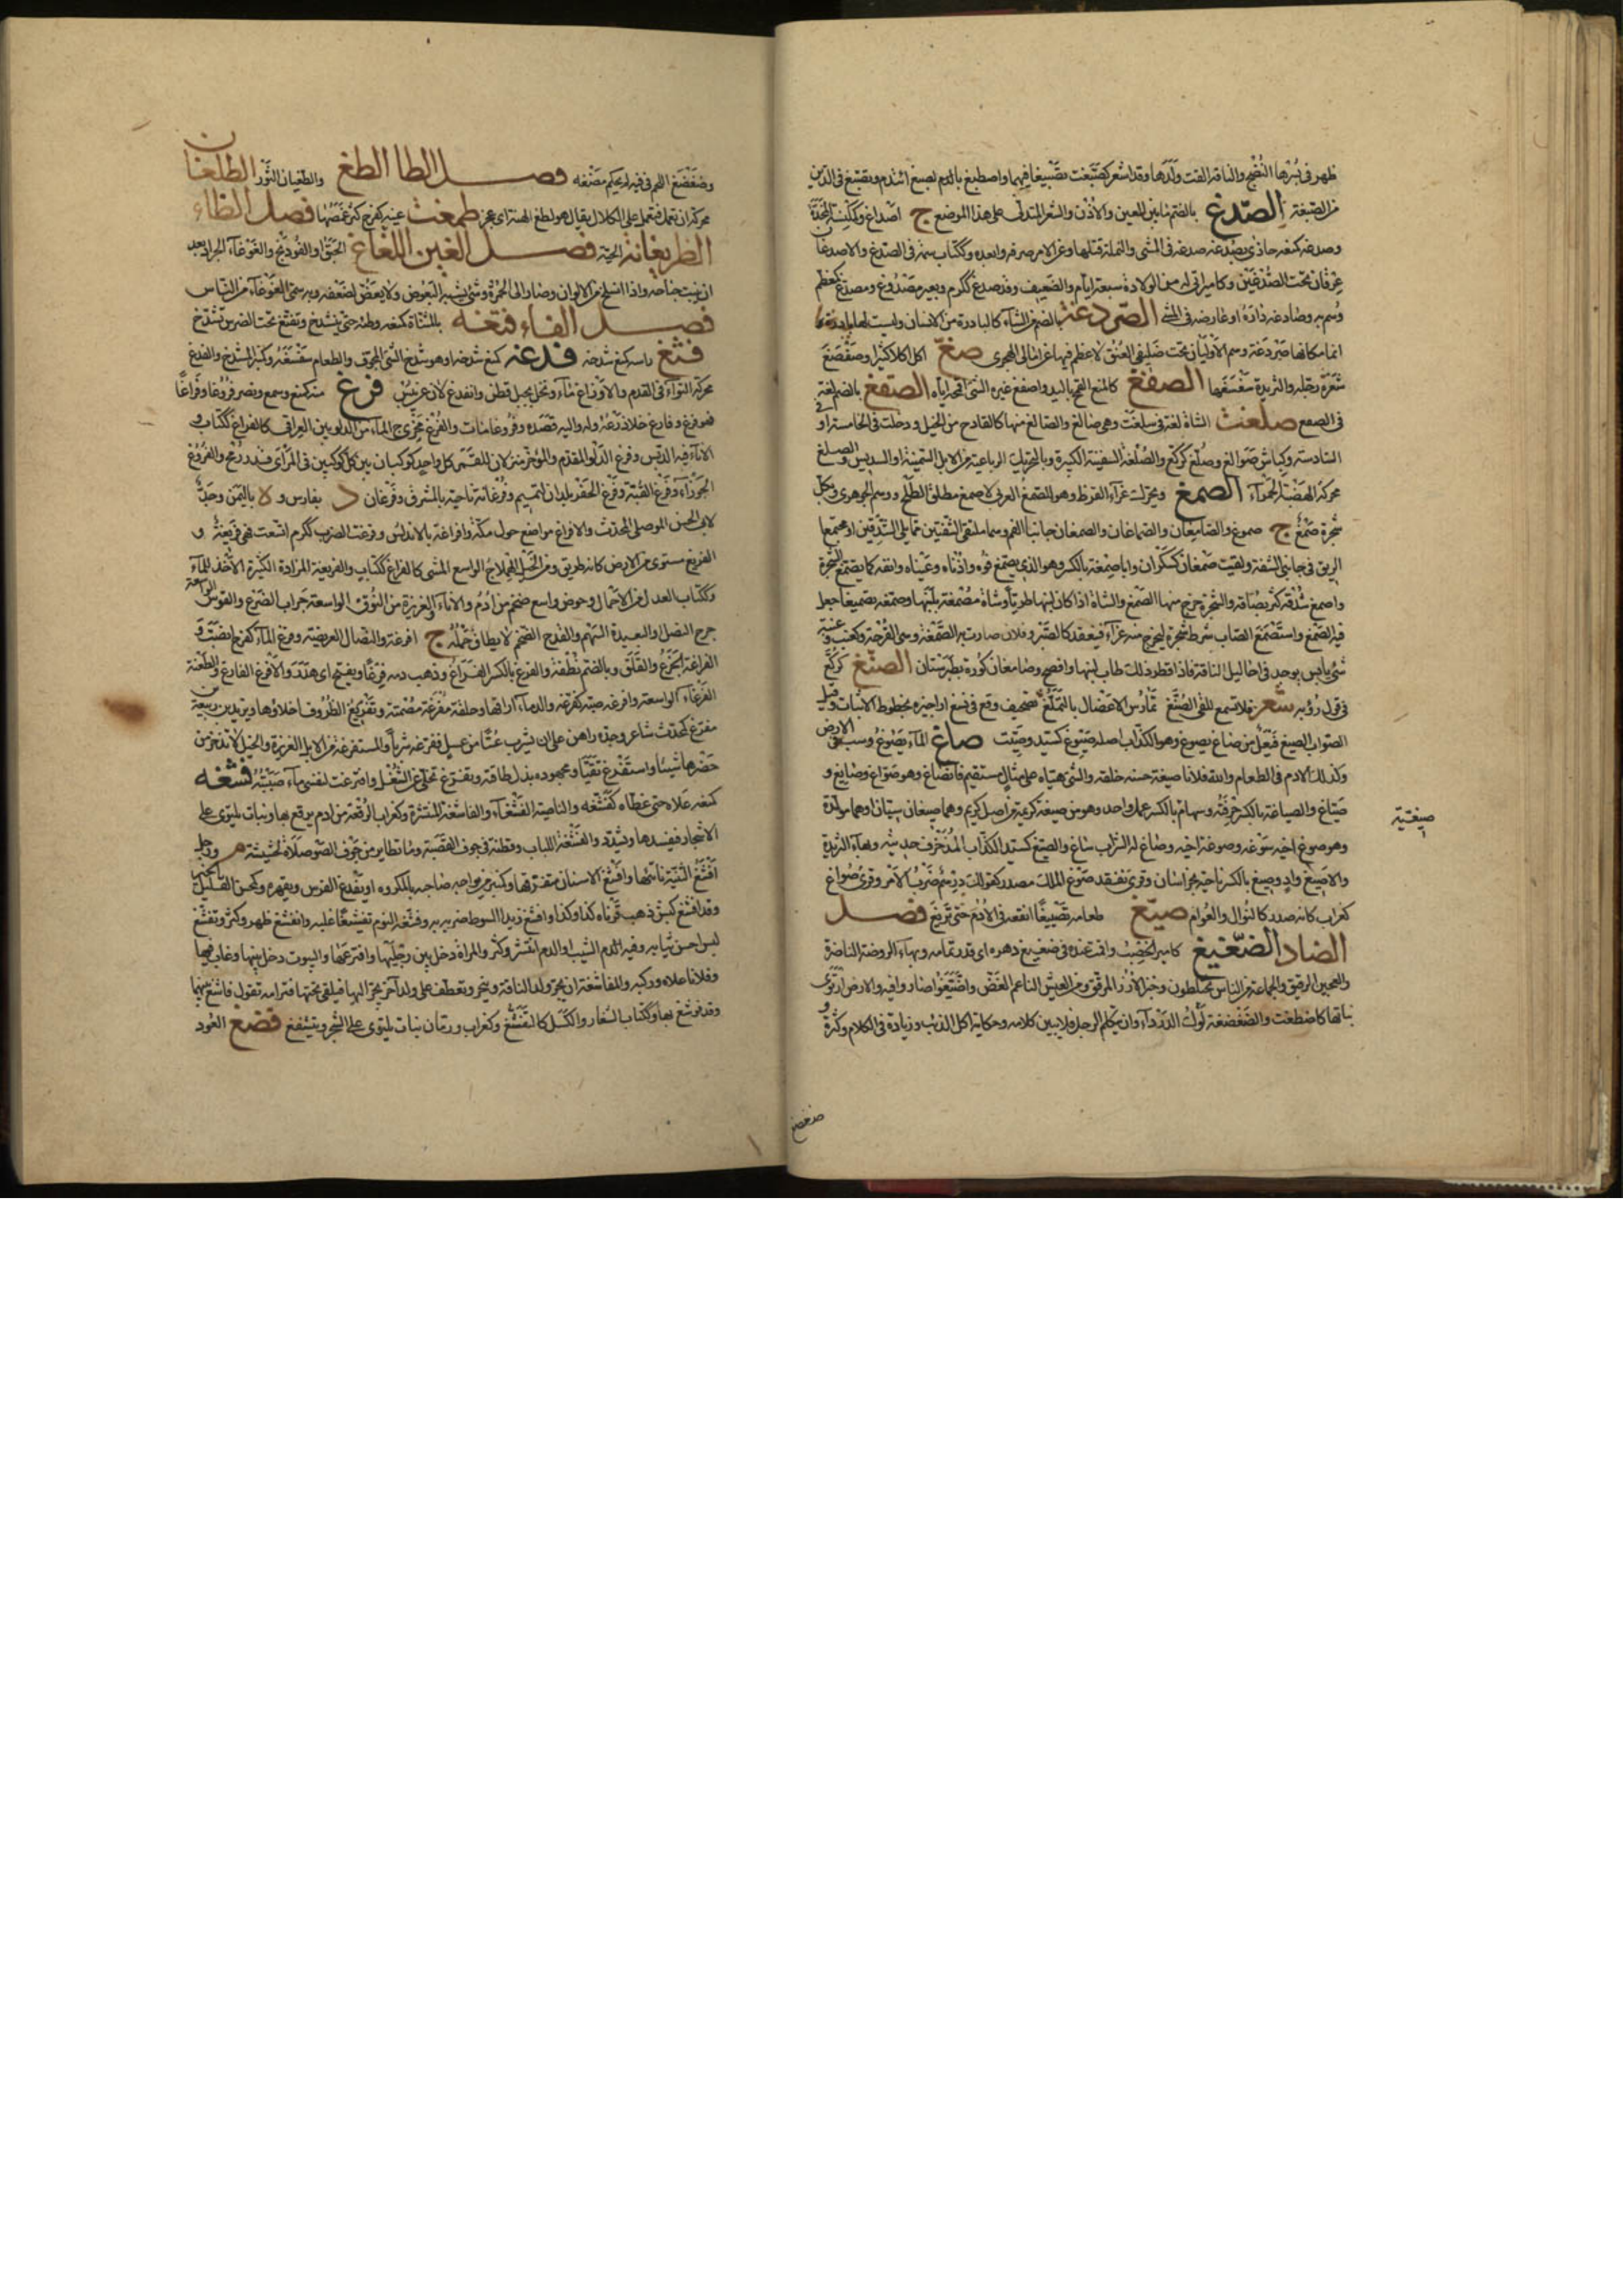 ظهر في بسرها النضج والناقة القت ولدها وقد اشعر كصبغت تصبيغا فيهما واصطبغ بالدم تصبغ ائتدم وتصبغ في الدين
من الصبغة الصدغ بالضم ما بين العين والاذن والشعر المتدلي على هذا الموضع ج اصداغ وككنسة المخدة
وصدغه كمنعه حاذى بصدغه صدغه في المشي والنملة قتلها وعن الامر صرفه وابعده وككتاب سمة في الصدغ والاصدغان
عرقان تحت الصدغين وكامير اتى له من الولادة سبعة ايام والضعيف وقد صدغ ككرم وبعير مصدوغ ومصدغ كمعظم
وسم به وصادغه داراه او عارضه في المشي الصردغة بالضم من الشاء كالبادرة من الانسان وليست لها بادرة
انما مكانها صردغة وسم الاوليان تحت صليفي العنق لا عظم فيها عزاها الى الهجري صغ اكل اكلا كثيرا وصغصغ
شعره رجله والثريدة سغسغها الصفغ كالمنع القمح باليد واصفغ غيره الشئ اقمحه اياه الصقغ بالضم لغة
في الصقع صلغت الشاة لغة في سلغت وهي صالغ والصالغ منها كالقارح من الخيل ودخلت في الخامسة او
السادسة وكباش صوالغ وصلغ كركع والصلغة السفينة الكبيرة وبالتحريك الرباعية من الابل السمينة او السديس والصلغ
محركة الهضبة الحمراء الصمغ ويحرك غراء القرظ وهو الصمغ العربي لا صمغ مطلق الطلح ووهم الجوهري ولكل
شجرة صمغ ج صموغ والصامغان والصماغان والصمغان جانبا الفم وهما ملتقى الشفتين مما يلي الشدقين او مجتمعا
الريق في جانبي الشفة ولقيت صمغان كسكران وابا صمغة بالكسر وهو الذي يصمغ فوه واذناه وعيناه وانفه كما يصمغ الشجرة
واصمغ شدقه كثر بصاقه والشجرة خرج منها الصمغ والشاة اذا كان لبنها طريا وشاة مصمغة بلبنها وصمغه تصميغا جعل
فيه الصمغ واستصمغ الصاب شرط شجره ليخرج منه غراء فينعقد كالصبر وفلان صارت به الصمغة وهي القرحة وكعنب وعنبة
شئ يابس يوجد في احاليل الناقة فاذا فطر ذلك طاب لبنها وافصح وصامغان كورة بطبرستان الصنغ كركع
في قول رؤبة شعر فلا تسمع للغي الصنغ تمارس الاعضال بالتملغ تصحيف وقع في نسغ اراجيزه بخطوط الاثبات وقيل
الصواب الصيغ فيعل من صاغ يصوغ وهو الكذاب اصله صيوغ كسيد وصيت صاغ الماء يصوغ رسب في الارض
وكذلك الادم في الطعام والله فلانا صيغة حسنة خلقه والشئ هيأه على مثال مستقيم فانصاغ وهو صواغ وصائغ و
صياغ والصياغة بالكسر حرفته وسهام بالكسر عمل واحد وهو من صيغة كريمة من اصل كريم وهما صيغان سيان او هما مولدة
وهو صوغ اخيه سوغه وصوغة اخيه وصاغ له الشراب ساغ والصيغ كسيد الكذاب المزخرف حديثه وبهاء الثريدة
والاصيغ واد وصيغ بالكسر ناحية بخراسان وقرئ نفقد صوغ الملك مصدر كقولك درهم ضرب الامير وقرئ صواغ
كغراب كانه مصدر كالنوال والعوام صيغ طعامه تصييغا انقعه في الادم حتى تريغ فصل
الضاد الضغيغ كامير الخصب واقمت عنده في ضغيغ دهره اي قدر تمامه وبهاء الروضة الناضرة
والعجين الرقيق والجماعة من الناس يختلطون وخبز الارز المرقق ومن العيش الناعم الغض واضتغوا صاروا فيه والارض ارتوى
نباتها كاضطغت والضغضغة لوك الدرداء وان يتكلم الرجل فلا يبين كلامه وحكاية اكل الذئب وزيادة في الكلام وكثرة و
صيغتية
ضغضغ
وضغضغ اللحم في فيه لم يحكم مضغه فصل الطا الطغ والطغيان الثور الطلغان
محركة ان يعيا فيعمل على الكلال يقال هو يطلغ المهنة اي عجز طمغت عينه كفرح كثر غمصها فصل الظاء
الظربغانة الحية فصل الغين الغاغ الحبق او الفودنج والغوغاء الجراد بعد
ان ينبت جناحه واذا انسلخ من الالوان وصار الى الحمرة وشئ يشبه البعوض ولا يعض لضعفه وبه سمى الغوغاء من الناس
فصل الفاء فتغه بالمثناة كمنعه وطئه حتى ينشدخ وتفتغ تحت الضرس تشدخ
فثغ راسه كمنع شدخه فدغه كمنع شدخه او هو شدخ الشئ المجوف والطعام سغسغه وكمنبر المشدخ والفدغ
محركة التواء في القدم والافداغ ماء ونخل بجبل قطن وانفدغ لان عن يبس فرغ منه كمنع وسمع ونصر فروغا وفراغا
فهو فرغ وفارغ خلا ذرعه وله واليه قصده وفروغا مات والفرغ مخرج الماء من الدلو بين العراقي كالفراغ ككتاب و
الاناء فيه الدبس وفرغ الدلو المقدم والمؤخر منزلان للقمر كل واحد كوكبان بين كل كوكبين في المرأى قدر رمح والفروغ
الجوزاء وفرغ القبة وفرغ الحفر بلدان لتميم وفرغانة ناحية بالمشرق وفرغان د بفارس و لا باليمن وجد
لابي الحسن الموصلي المحدث والافراغ مواضع حول مكة وافراغة بالاندلس وفرغت الضربة ككرم اتسعت فهي فريغة و
الفريغ مستوى من الارض كانه طريق ومن الخيل الهملاج الواسع المشي كالفراغ ككتاب والفريغة المزادة الكثيرة الاخذ للماء
وككتاب العدل من الاحمال وحوض واسع ضخم من ادم والاناء والغزيرة من النوق الواسعة جراب الضرع والقوس الواسعة
جرح النصل والبعيدة السهم والقدح الضخم لا يطاق حمله ج افرغة والنصال العريضة وفرغ الماء كفرح انصب و
الفراغة الجزع والقلق وبالضم نطفة والفرغ بالكسر الفراغ وذهب دمه فرغا ويفتح اي هدرا والافرغ الفارغ والطعنة
الفرغاء الواسعة وافرغه صبه كفرغه والدماء اراقها وحلقة مفرغة مصمتة وتفريغ الظروف اخلاؤها ويزيد بن ربيعة بن
مفرغ كمحدث شاعر وجده راهن على ان يشرب عسا من عسل ففرغه شربا والمستفرغة من الابل الغزيرة والخيل لا تدخر من
حضرها شيئا واستفرغ تقيأ ومجهوده بذل طاقته وتفرغ تخلى عن الشغل وافترغت لنفسي ماء صببته فشغه
كمنعه علاه حتى غطاه كفشغه والناصية الفشغاء والفاشغة المنتشرة وكغراب الرقعة من ادم يرقع بها ونبات يلتوي على
الاشجار فيفسدها ويشدد والفشغة اللباب وقطنة في جوف القصبة وما تطاير من جوف الصوصلاة لحشيشة م ورجل
افشغ الثنية ناتئها وافشغ الاسنان متفرقها وكمنبر من يواجه صاحبه بالمكروه او يقدع الفرس ويقهره وكمحسن القليل الخير
وقد افشغ كبش ذهب قرناه كذا وكذا وافشغ زيدا السوط ضربه به وفشغه النوم تفشيغا غلبه وانفشغ ظهر وكثر وتفشغ
لبس احسن ثيابه وفيه الدم الشيب او الدم انتشر وكثر والمراة دخل بين رجليها وافترعها والبيوت دخل بينها وغاب فيها
وفلانا علاه وركبه والمفاشغة ان يجر ولد الناقة وينحر وتعطف على ولد آخر يجر اليها فيلقى تحتها فترامه تقول فاشغ بينهما
وقد فوشغ بها وككتاب الشغار والكسل كالتفشغ وكغراب ورمان نبات يلتوي على الشجر ويتشفغ فضغ العود